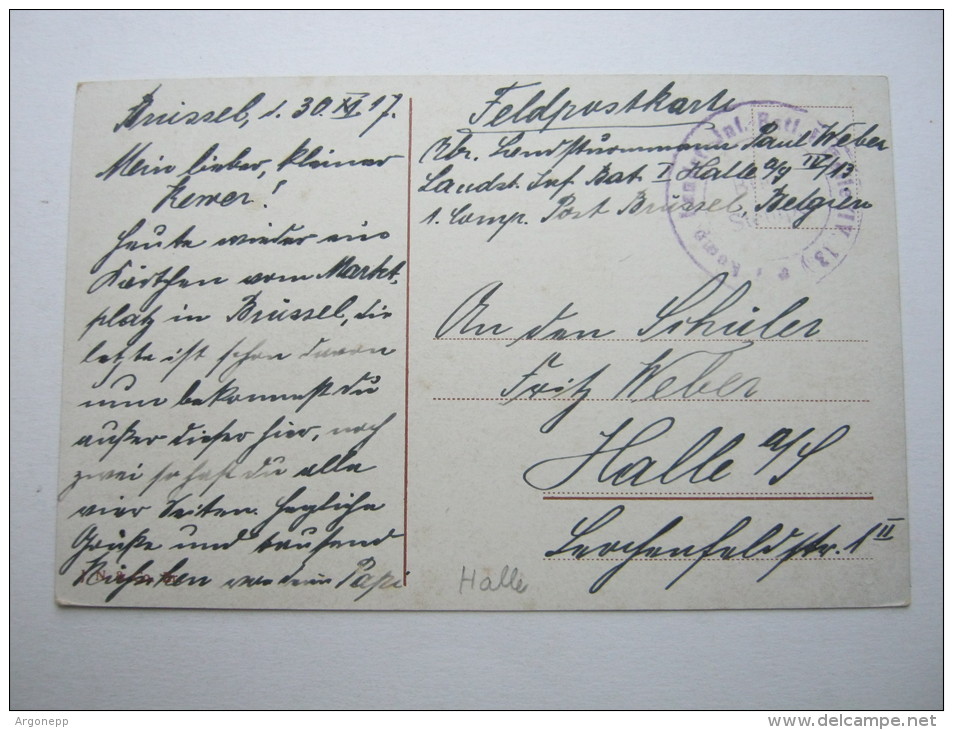 Brüssel, d. 30. XI. 17.
Mein lieber, kleiner
Heute wieder ein
Kärtchen vom Markt-
platz in Brüssel, die
letzte ist schon davon
nun bekommst du
außer dieser hier, noch
zwei so hast du alle
vier Seiten. Herzliche
Grüße und tausend
Papi
Feldpostkarte
Landsturmmann Paul Weber
Landst. Inf. Bat. I Halle a/S IV/13
1. Comp. Post Brüssel, Belgien
An den Schüler
Fritz Weber
Halle a/S
Lerchenfeldstr. 1 II
Halle
Argonepp
www.delcampe.net